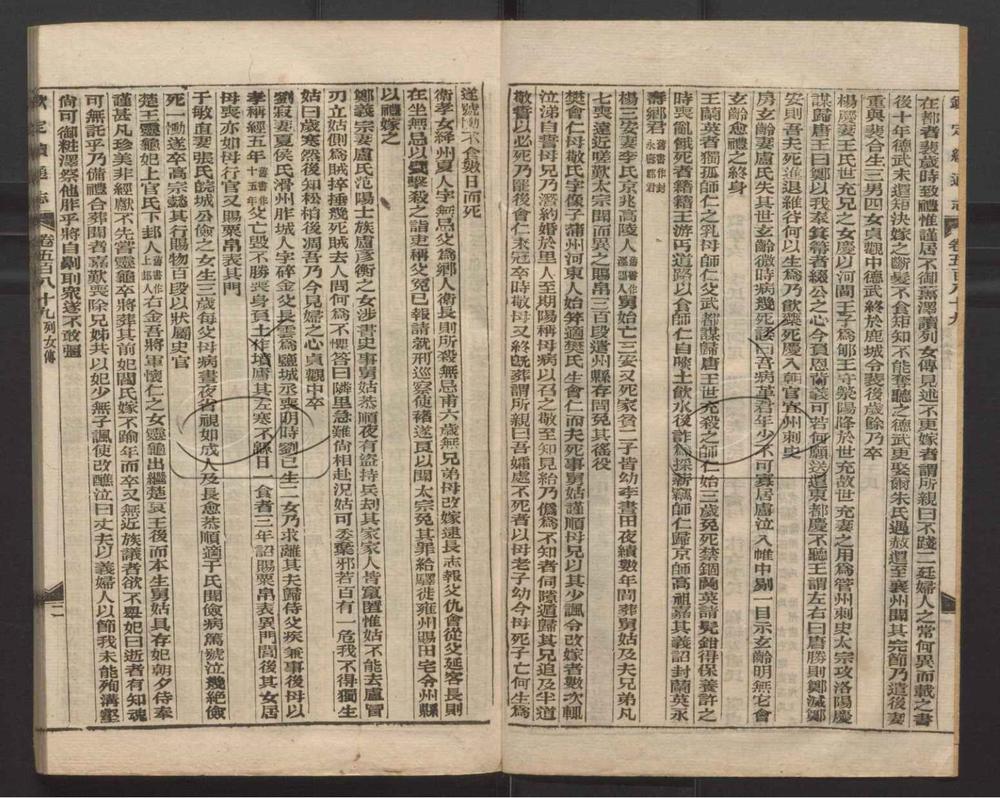 欽定續通志 卷五百八十九
在都者裴歲時致禮惟謹居不御薰澤讀列女傳見述不更嫁者謂所親曰不踐二廷婦人之常何異而載之書
後十年德武未還矩決嫁之斷髮不食矩知不能奪聽之德武更娶爾朱氏遇赦還至襄州聞其完節乃遣後妻
重與裴合生三男四女貞觀中德武終於鹿城令裴後歲餘乃卒
楊慶妻王氏世充兄之女慶以河間王子爲郇王守滎陽降於世充故世充妻之用爲管州刺史太宗攻洛陽慶
謀歸唐王曰鄭以我奉箕箒者綴公之心今負恩蔑義可若何願送還東都慶不聽王謂左右曰唐勝則鄭滅鄭
安則吾夫死進退維谷何以生爲乃飲藥死慶入朝官宜州刺史
房玄齡妻盧氏失其世玄齡微時病幾死諉曰吾病革君年少不可寡居盧泣入帷中剔一目示玄齡明無它會
玄齡愈禮之終身
王蘭英者獨孤師仁之乳母師仁父武都謀歸唐王世充殺之師仁始三歲免死禁錮蘭英請髡鉗得保養許之
時喪亂餓死者藉藉王游丐道路以食師仁自啖土飲水後詐爲採薪竊師仁歸京師高祖嘉其義詔封蘭英永
壽鄉君 舊書作封永壽郡君
楊三安妻李氏京兆高陵人 舅姑亡三安又死家貧二子皆幼李晝田夜績數年間葬舅姑及夫兄弟凡
七喪遠近嗟歎太宗聞而異之賜帛三百段遣州縣存問免其徭役
樊會仁母敬氏字像子蒲州河東人始笄適樊氏生會仁而夫死事舅姑謹順母兄以其少諷令改嫁者數次輒
泣涕自誓母兄乃潛約婚於里人至期陽稱母病以召之敬至知見紿乃僞爲不知者伺隙遁歸其兄追及半道
敬誓以必死乃罷後會仁未冠卒時敬母又終旣葬謂所親曰吾孀處不死者以母老子幼今母死子亡何生爲
遂號慟不食數日而死
衞孝女絳州夏人字無忌父爲鄉人衞長則所殺無忌甫六歲無兄弟母改嫁逮長志報父仇會從父延客長則
在坐無忌以甓擊殺之詣吏稱父冤已報請就刑巡察使褚遂良以聞太宗免其罪給驛徙雍州賜田宅令州縣
以禮嫁之
鄭義宗妻盧氏范陽士族盧彥衡之女涉書史事舅姑恭順夜有盜持兵刦其家家人皆竄匿惟姑不能去盧冒
刃立姑側爲賊捽捶幾死賊去人問何爲不懼答曰隣里急難尚相赴況姑可委棄邪若百有一危我不得獨生
姑曰歲寒然後知松栢後凋吾乃今見婦之心貞觀中卒
劉寂妻夏侯氏滑州胙城人字碎金父長雲爲鹽城丞喪明時劉已生二女乃求離其夫歸侍父疾兼事後母以
孝稱經五年 舊書作十五年 父亡毀不勝喪身負土作墳廬其左寒不緜日一食者三年詔賜粟帛表異門閭後其女居
母喪亦如母行官又賜粟帛表其門
于敏直妻張氏皖城公儉之女生三歲每父母病晝夜省視如成人及長愈恭順適于氏聞儉病篤號泣幾絕儉
死一慟遂卒高宗懿其行賜物百段以狀屬史官
楚王靈龜妃上官氏下邽人 舊書作上邽人 右金吾將軍懷仁之女靈龜出繼楚哀王後而本生舅姑具存妃朝夕侍奉
謹甚凡珍美非經獻不先嘗靈龜卒將葬其前妃閻氏嫁不踰年而卒又無近族議者欲不舉妃曰逝者有知魂
可無託乎乃備禮合葬聞者嘉歎喪除兄姊共以妃少無子諷使改醮泣曰丈夫以義婦人以節我未能殉溝壑
尚可御粧澤祭他胙乎將自劓刵眾遂不敢彊
欽定續通志 卷五百八十九 列女傳 二